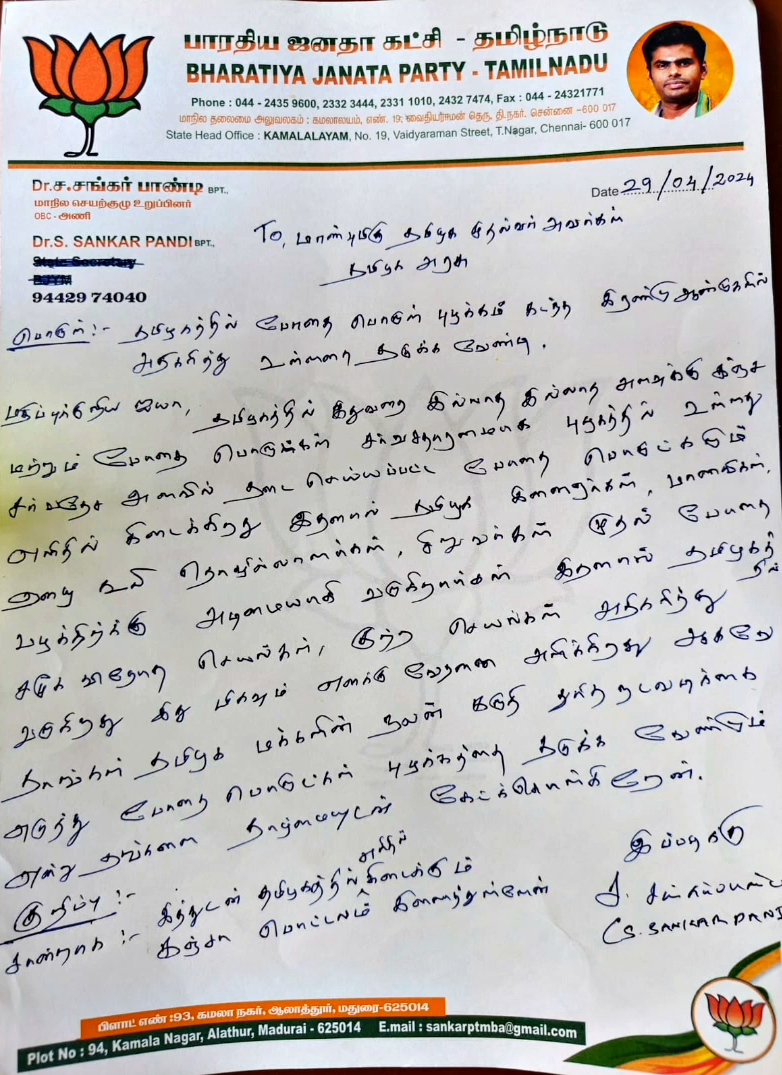 பாரதிய ஜனதா கட்சி - தமிழ்நாடு
BHARATIYA JANATA PARTY - TAMILNADU
Phone : 044 - 2435 9600, 2332 3444, 2331 1010, 2432 7474, Fax : 044 - 24321771
மாநில தலைமை அலுவலகம் : கமலாலயம், எண். 19; வைத்தியராமன் தெரு, தி.நகர், சென்னை -600 017
State Head Office : KAMALALAYAM, No. 19, Vaidyaraman Street, T.Nagar, Chennai- 600 017
Dr.ச.சங்கர் பாண்டி BPT.,
மாநில செயற்குழு உறுப்பினர்
OBC - அணி
Dr.S. SANKAR PANDI BPT.,
State Secretary
BJYM
94429 74040
Date 29/04/2024
To, மாண்புமிகு தமிழக முதல்வர் அவர்கள்
தமிழக அரசு
பொருள்:- தமிழகத்தில் போதை பொருள் புழக்கம் கடந்த இரண்டு ஆண்டுகளில்
அதிகரித்து உள்ளதை தடுக்க வேண்டி.
மதிப்புக்குரிய ஐயா, தமிழகத்தில் இதுவரை இல்லாத இல்லாத அளவுக்கு கஞ்சா
மற்றும் போதை பொருட்கள் சர்வசாதாரணமாக புழக்கத்தில் உள்ளது
சர்வதேச அளவில் தடை செய்யப்பட்ட போதை பொருட்களும்
எளிதில் கிடைக்கிறது இதனால் தமிழக இளைஞர்கள், மாணவர்கள்,
கூலி தொழிலாளர்கள், சிறுவர்கள் முதல் போதை
பழக்கத்திற்க்கு அடிமையாகி வருகிறார்கள் இதனால் தமிழகத்தில்
சமூக விரோத செயல்கள், குற்ற செயல்கள் அதிகரித்து
வருகிறது இது மிகவும் எனக்கு வேதனை அளிக்கிறது ஆகவே
தாங்கள் தமிழக மக்களின் நலன் கருதி துரித நடவடிக்கை
எடுத்து போதை பொருட்கள் புழக்கத்தை தடுக்க வேண்டும்
என்று தங்களை தாழ்மையுடன் கேட்டுக்கொள்கிறேன்.
குறிப்பு:- இத்துடன் தமிழகத்தில் எளிதில் கிடைக்கும்
சான்றாக :- கஞ்சா பொட்டலம் இணைத்துள்ளேன்
இப்படிக்கு
(S. SANKAR PANDI
பிளாட் எண் :93, கமலா நகர், ஆலாத்தூர், மதுரை-625014
Plot No : 94, Kamala Nagar, Alathur, Madurai - 625014 E.mail : sankarptmba@gmail.com